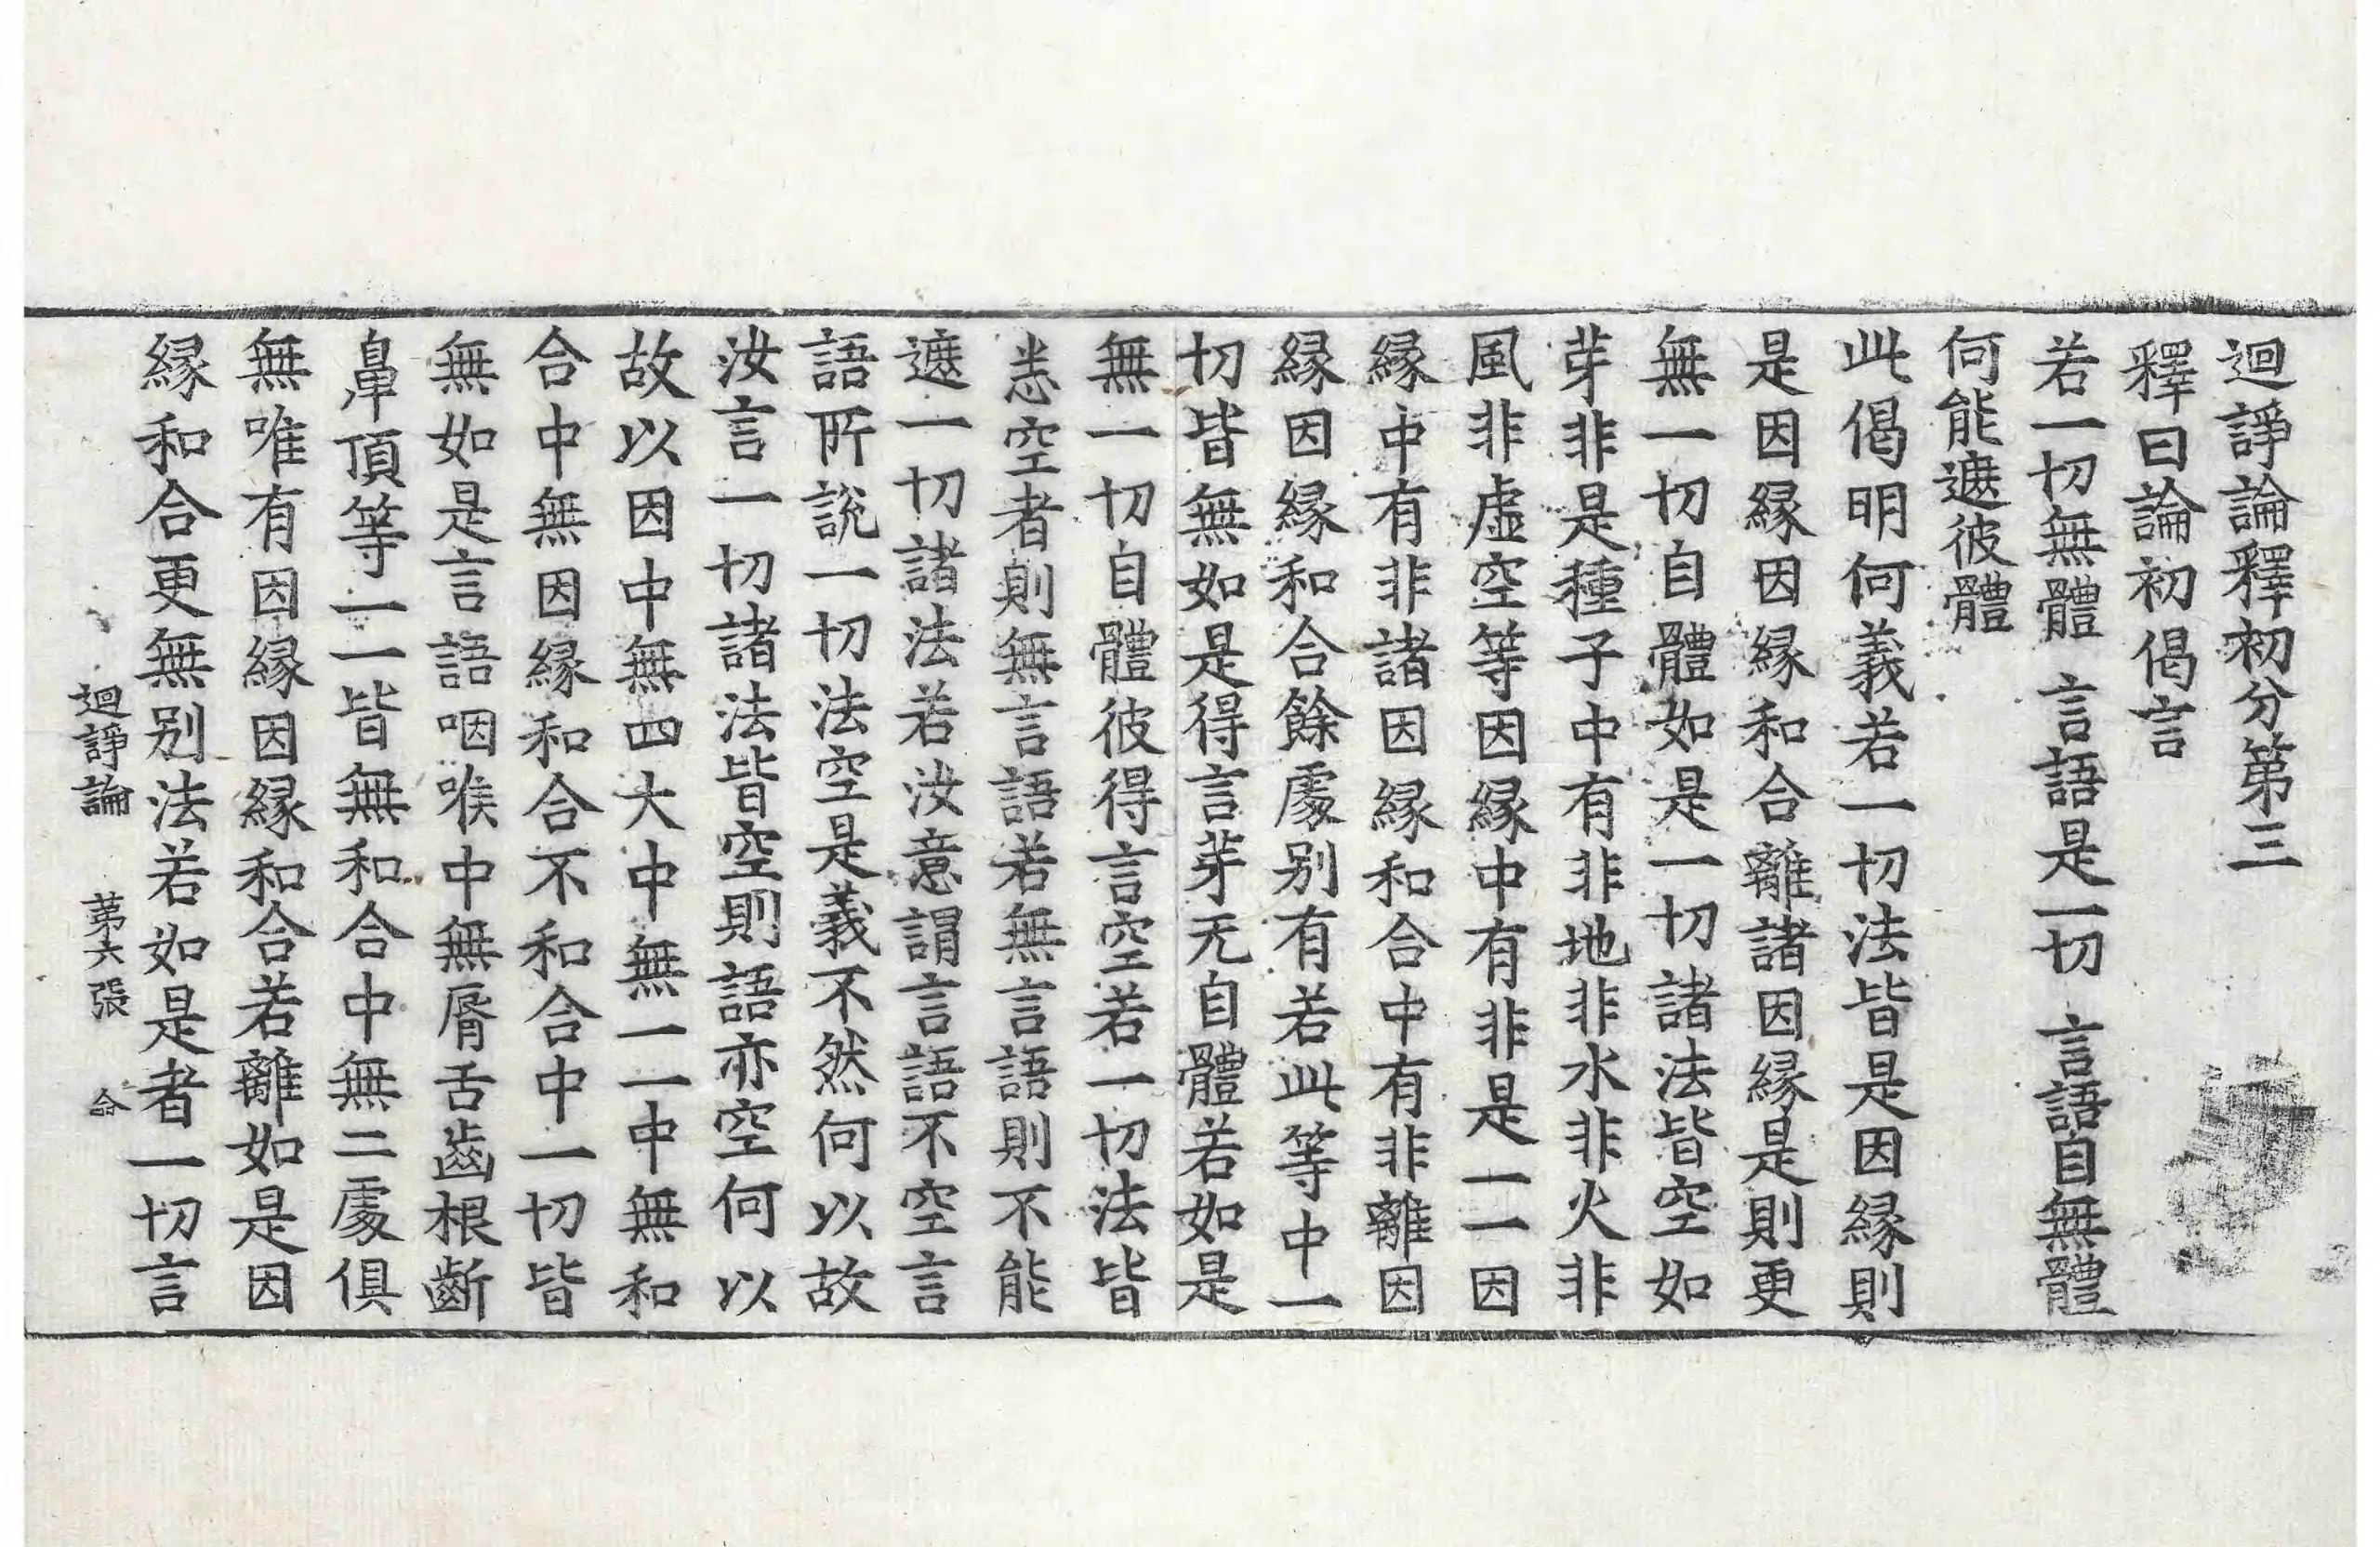 迴諍論釋初分第三
釋曰論初偈言
若一切無體 言語是一切 言語自無體
何能遮彼體
此偈明何義若一切法皆是因緣則
是因緣因緣和合離諸因緣是則更
無一切自體如是一切諸法皆空如
芽非是種子中有非地非水非火非
風非虛空等因緣中有非是一一因
緣中有非諸因緣和合中有非離因
緣因緣和合餘處別有若此等中一
切皆無如是得言芽无自體若如是
無一切自體彼得言空若一切法皆
悉空者則無言語若無言語則不能
遮一切諸法若汝意謂言語不空言
語所說一切法空是義不然何以故
汝言一切諸法皆空則語亦空何以
故以因中無四大中無一一中無和
合中無因緣和合不和合中一切皆
無如是言語咽喉中無脣舌齒根齗
鼻頂等一一皆無和合中無二處俱
無唯有因緣因緣和合若離如是因
緣和合更無別法若如是者一切言
迴諍論 第六張 命